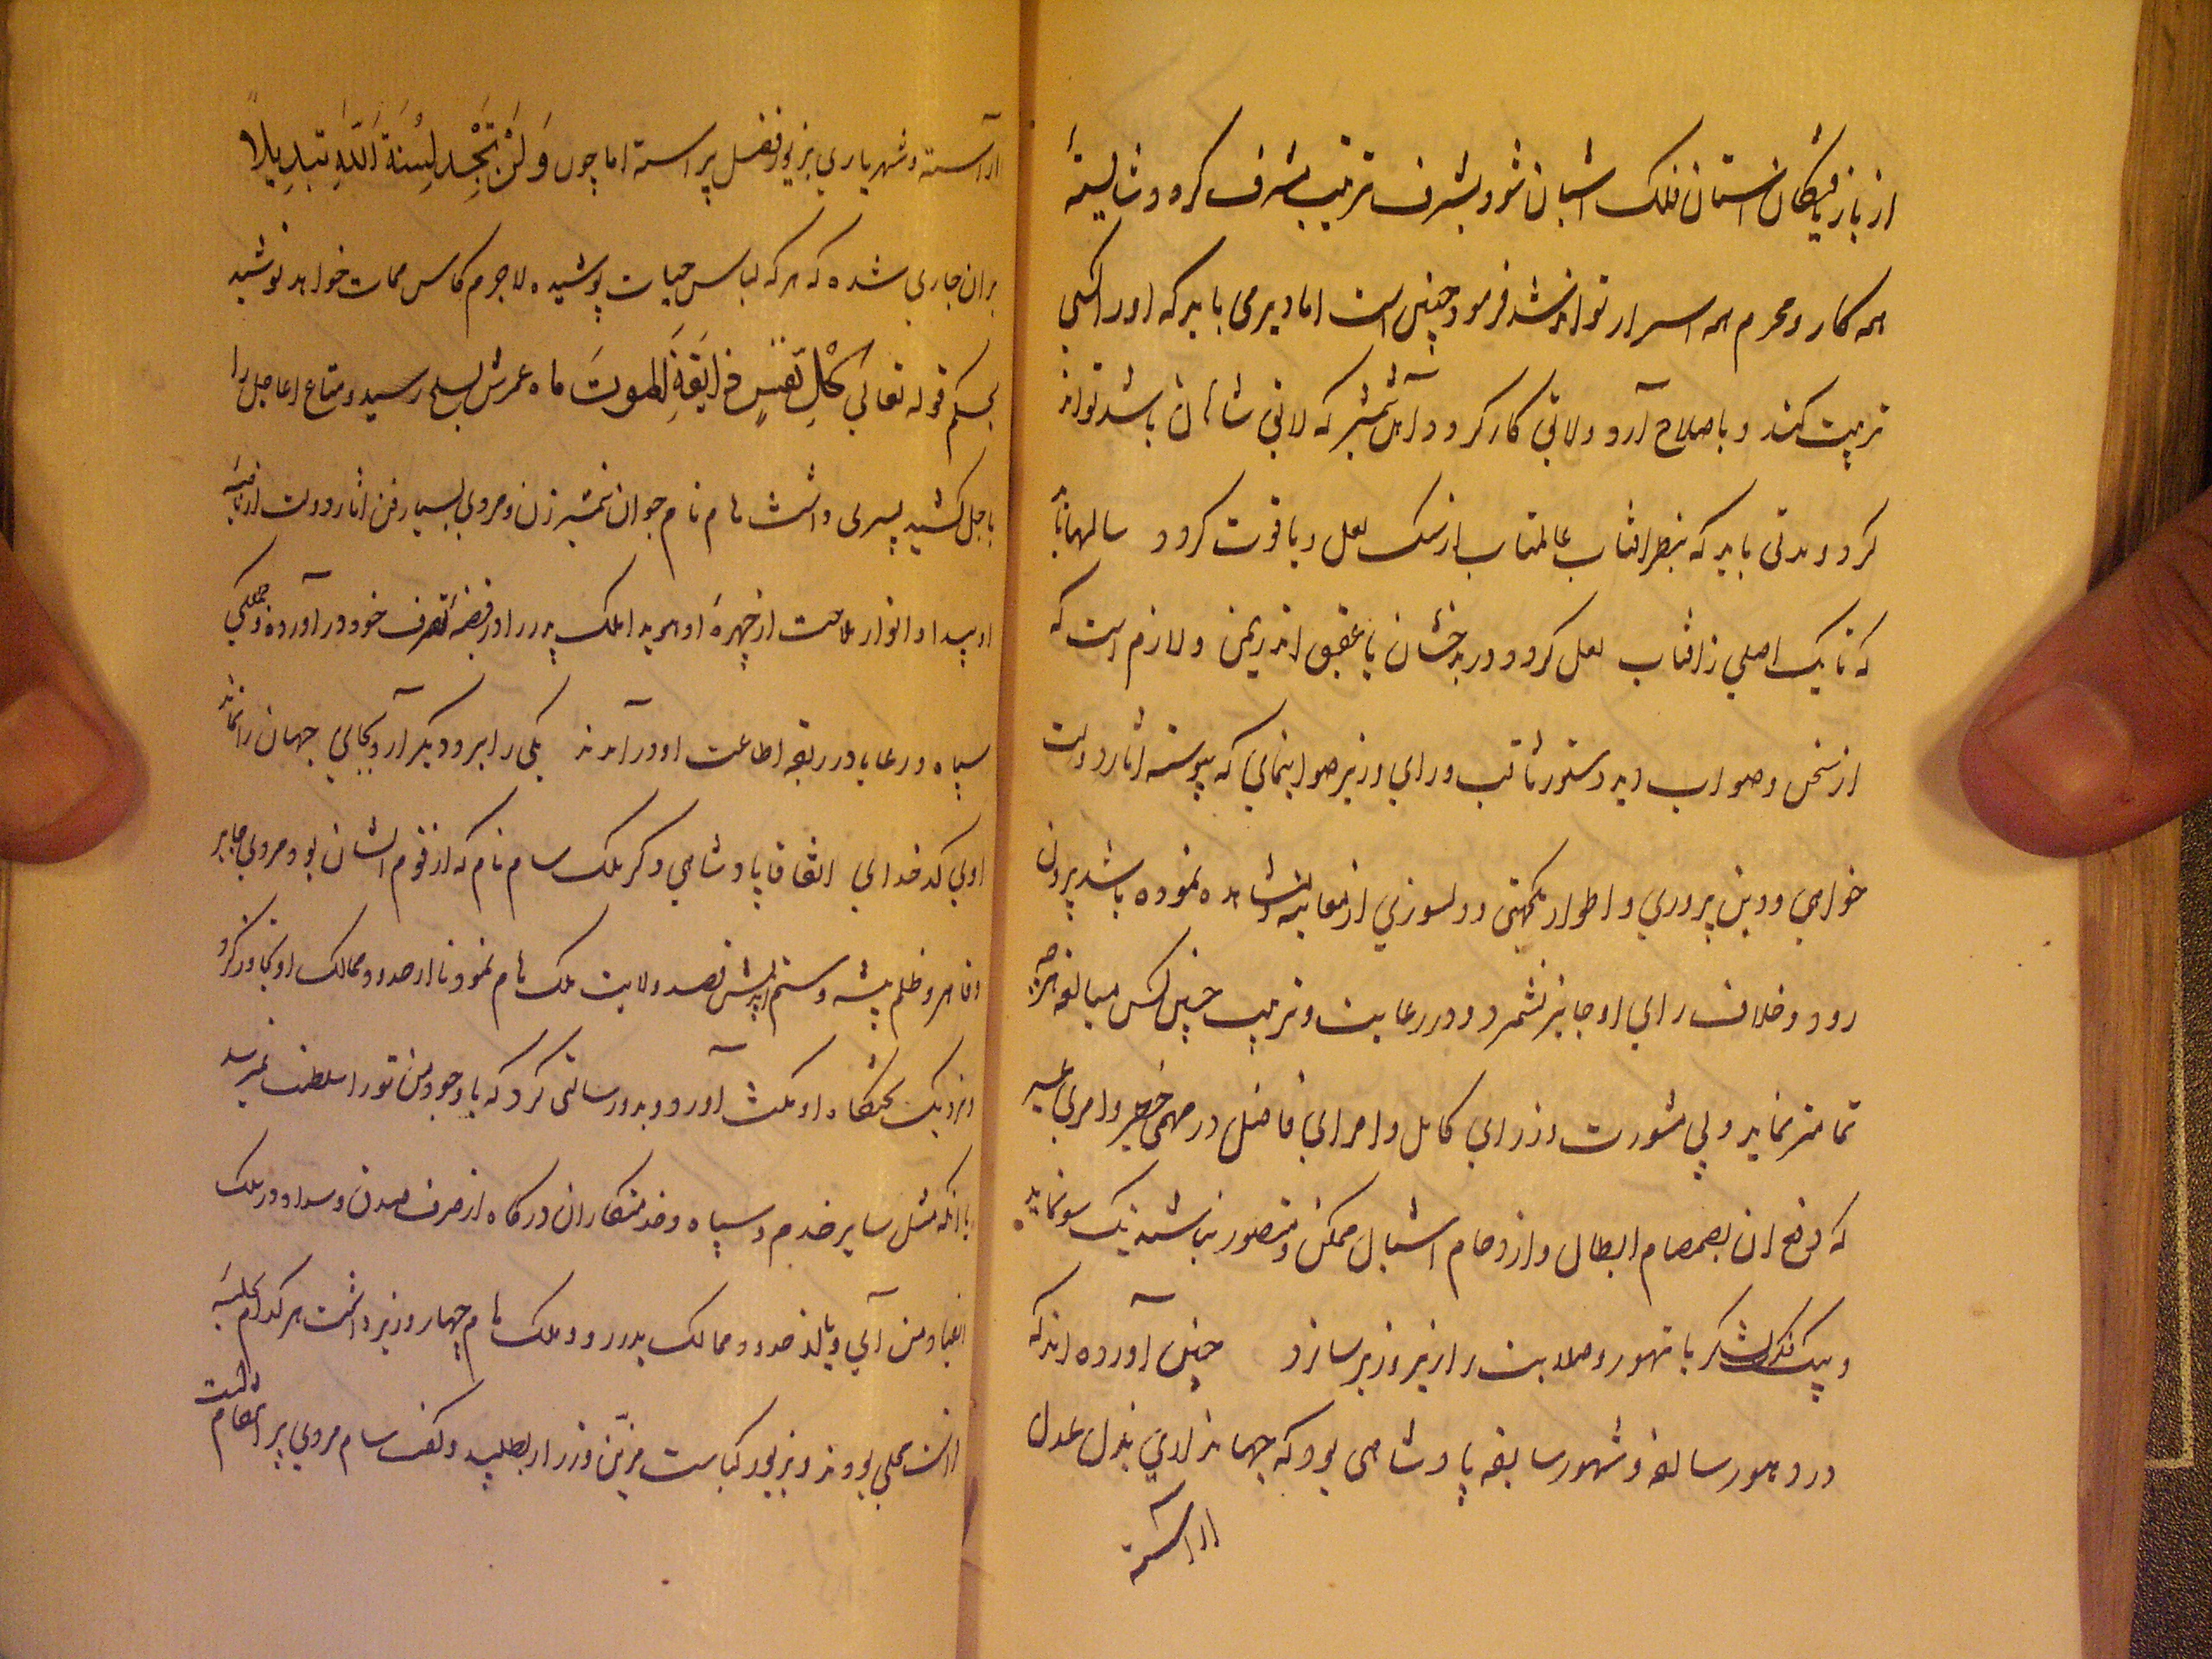 از بازیافتگان استان فلک اشیان شود بشرف تربیت مشرف کرد و شایستهٔ
همه کار و محرم همه اسرار تواند شد فرمود چنین است اما دیر می باید که او را کسی
تربیت کند و باصلاح آرد و لایق کار کردد آهن شمشیر که لایق شاهان باشد تواند
کرد و مدتی باید که بنظر افتاب عالمتاب از سنک لعل و یاقوت کردد سالها باید
که تا یک اصلی ز افتاب لعل کردد در بدخشان یا عقیق اندر یمن و لازم است که
از سخن و صواب دید دستور ثاقب و رای وزیر صوابنمای که پیوسته اثار دولت
خواهی و دین پروری و اطوار یکجهتی و دلسوزی از معاینه و مشاهده نموده باشد بیرون
رود و خلاف رای او جایز نشمرد و در رعایت و تربیت چنین کس مبالغه هرچه
تمامتر نماید و بی مشورت وزرای کامل و امرای فاضل در مهمی خطیر و امری عسیر
که دفع ان بصمصام ابطال و ازدحام اشبال ممکن و متصور نباشد نیک سو نماید
و بیک فکر لشکر با تهور و صلابت را زیر و زبر سازد چنین آورده اند که
در دهور سالفه و شهور سابقه پادشاهی بود که جهاندار لاری بذل عدل
اراسته
اراسته و شهریاری بزیور فضل پراسته اما چون وَلَنْ تَجِدَ لِسُنَةِ اللّهِ تَبدِیلاً
بران جاری شده که هرکه لباس حیات پوشیده لاجرم کاس ممات خواهد نوشید
بحکم قوله تعالی کُلُ نَفسٍ ذَایِقَةُ المَوتَ ماه عمرش بسلخ رسید و متاع اعاجل را
باجل کشید پسری داشت هام نام جوان شمشیرزن و مردی بسیار فن اثار دولت از ناصیهٔ
او پیدا و انوار ملاحت از چهرهٔ او هویدا ملک پدر را در قبضهٔ تصرف خود در آورده و جملکی
سپاه و رعایا در ربقه اطاعت او در آمدند یکی را برد و دیکر آرد بجای جهان را نماند
اوبی کدخدای اتفاقا پادشاهی دکر ملک سام نام که از قوم ایشان بود مردی جابر
و قاهر و ظلم پیشه و ستم اندیش قصد ولایت ملک هام نمود تا از حدود ممالک او تجاوز کرد
و نزدیک تختکاه او ملکش آورد و بدو رسالتی کرد که با وجود من تو را سلطنت نمیرسد
یا انکه مثل سایر خدم و سپاه و خدمتکاران درکاه از صرف صدق و سداد در ملک
انقیاد من آی و یا از حدود ممالک بدر رو و ملک هام چهار وزیر داشت هر کدام بحلیهٔ
دانش محلی بودند و بزیور کیاست مزین وزرا را بطلبید و کفت سام مردی پر انتقام است